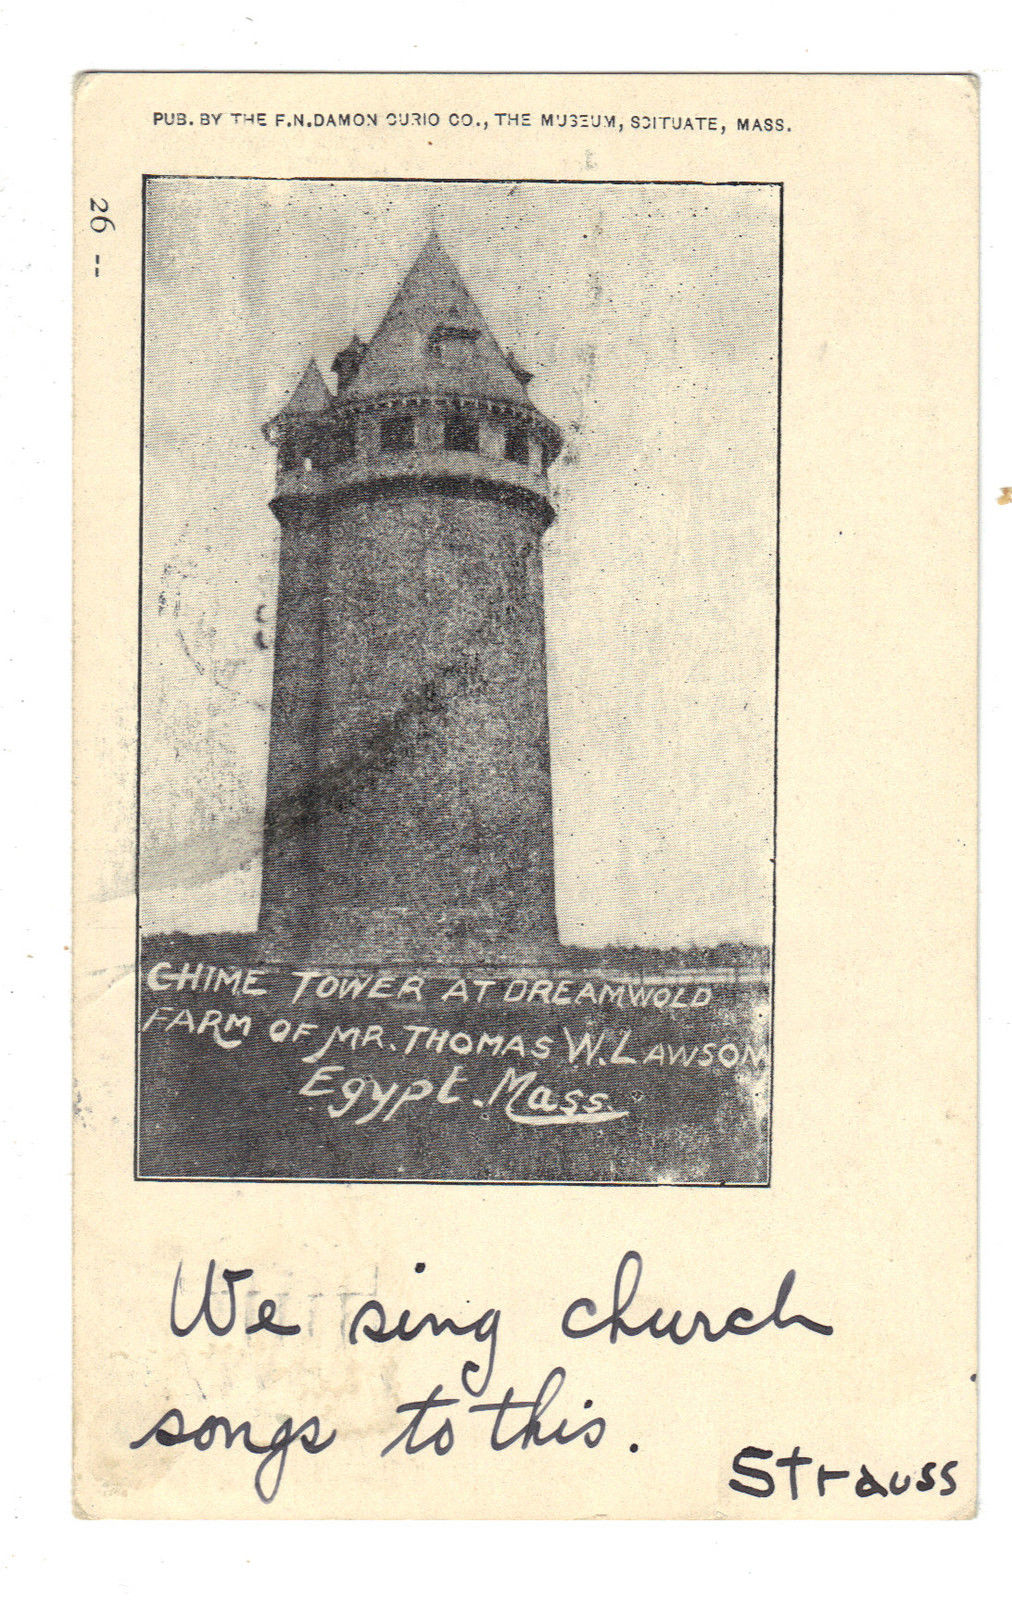 PUB. BY THE F.N.DAMON CURIO CO., THE MUSEUM, SCITUATE, MASS.
26 --
CHIME TOWER AT DREAMWOLD
FARM OF MR. THOMAS W. LAWSON
Egypt. Mass.
We sing church
songs to this.
Strauss